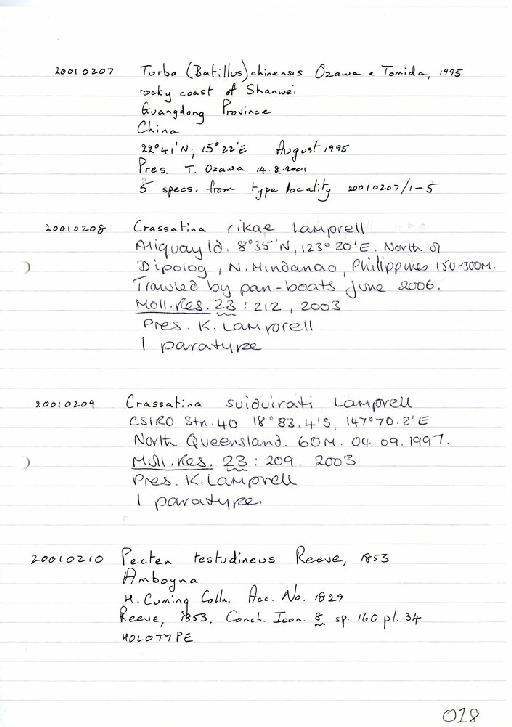 20010207 Turbo (Batillus) chinensis Ozawa & Tomida, 1995
rocky coast of Shanwei
Guangdong Province
China
22°41'N, 15°22'E August 1995
Pres. T. Ozawa 14.8.2001
5 specs. from type locality 20010207/1-5
20010208 Crassatina rikae Lamprell
Aliquay Id. 8°35'N, 123°20'E. North of
Dipolog, N. Mindanao, Philippines 150-300M.
Trawled by pan-boats June 2006.
Moll. Res. 23 : 212, 2003
Pres. K. Lamprell
1 paratype
20010209 Crassatina suiduirati Lamprell
CSIRO Stn. 40 18°83.4'S, 147°70.2'E
North Queensland. 60M. 04.09.1997.
Moll. Res. 23 : 209. 2003
Pres. K. Lamprell
1 paratype.
20010210 Pecten testudineus Reeve, 1853
Amboyna
H. Cuming Colln. Acc. No. 1829
Reeve, 1853, Conch. Icon. 8, sp. 160 pl. 34
HOLOTYPE
028